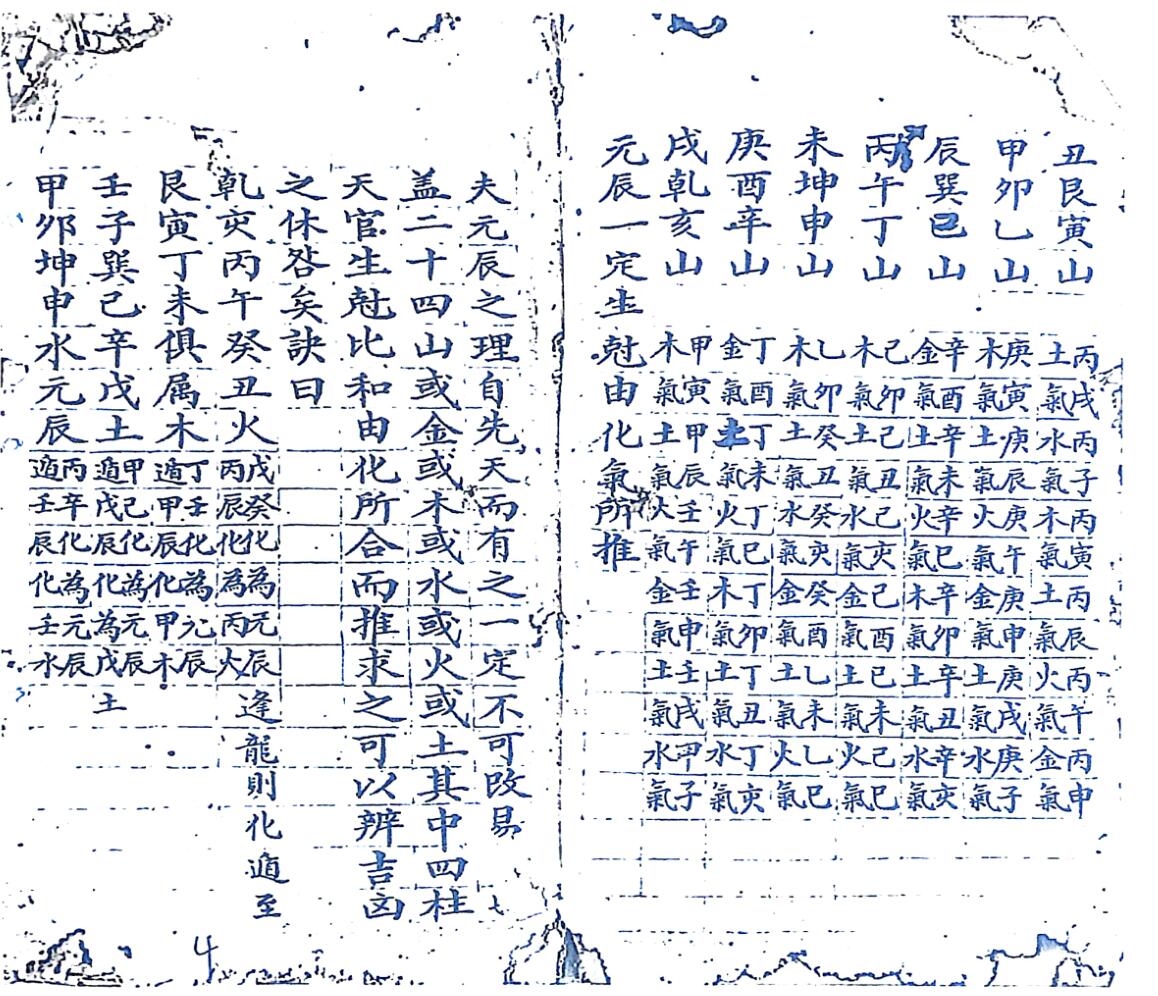 丑艮寅山 丙戌土氣 丙子水氣 丙寅木氣 丙辰土氣 丙午火氣 丙申金氣
甲卯乙山 庚寅木氣 庚辰土氣 庚午火氣 庚申金氣 庚戌土氣 庚子水氣
辰巽巳山 辛酉金氣 辛未土氣 辛巳火氣 辛卯木氣 辛丑土氣 辛亥水氣
丙午丁山 己卯木氣 己丑土氣 己亥水氣 己酉金氣 己未土氣 己巳火氣
未坤申山 乙卯木氣 癸丑土氣 癸亥水氣 癸酉金氣 乙未土氣 乙巳火氣
庚酉辛山 丁酉金氣 丁未土氣 丁巳火氣 丁卯木氣 丁丑土氣 丁亥水氣
戌乾亥山 甲寅木氣 甲辰土氣 壬午火氣 壬申金氣 壬戌土氣 甲子水氣
元辰一定生尅由化氣所推
夫元辰之理自先天而有之一定不可改易
盖二十四山或金或木或水或火或土其中四柱
天官生尅比和由化所合而推求之可以辨吉凶
之休咎矣訣曰
乹亥丙午癸丑火 戊癸化為元辰丙辰化為丙火 逢龍則化遁至
艮寅丁未俱属木 丁壬化為元辰遁甲辰化為甲木
壬子巽己辛戊土 甲己化為元辰遁戊辰化為戊土
甲卯坤申水元辰 丙辛化為元辰遁壬辰化為壬水
4